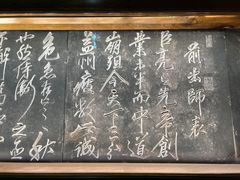 前出師表
臣亮言先帝創
業未半而中道
崩殂今天下三分
益州疲敝此誠
危急存亡之秋
也然侍衛之臣